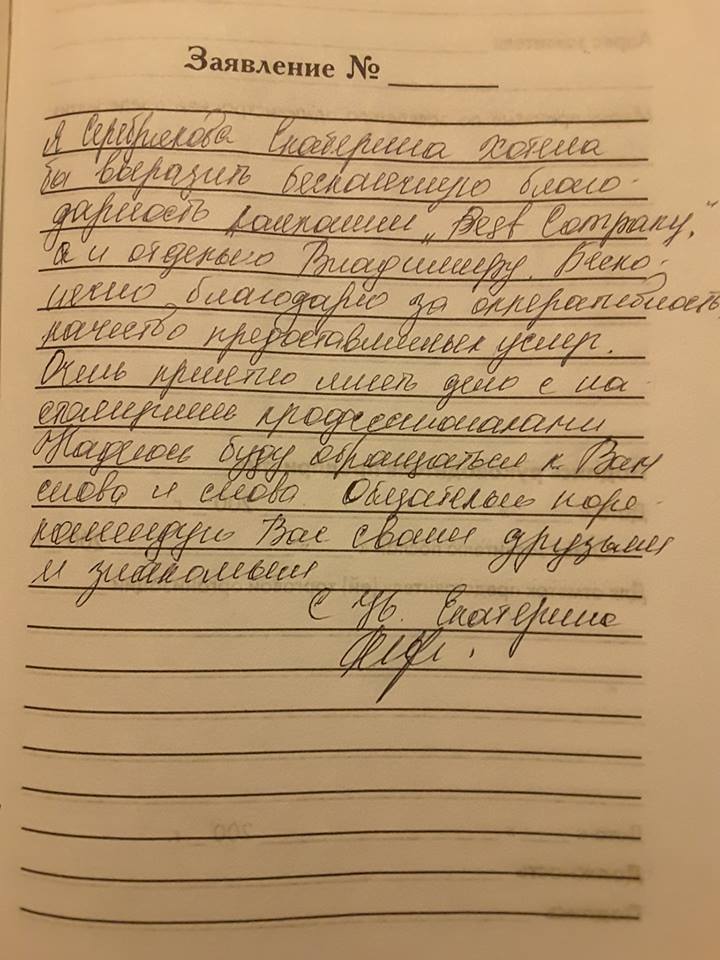 Заявление № ______
Я Серебрякова Екатерина хотела
бы выразить бесконечную благо-
дарность компании „Best Company,"
а и отдельно Владимиру. Беско-
нечно благодарю за опперативность,
качество предоставленных услуг.
Очень приятно иметь дело с на-
стоящими профессионалами
Надеюсь буду обращаться к Вам
снова и снова. Обязательно поре-
комендую Вас своим друзьям
и знакомым
С Ув. Екатерина